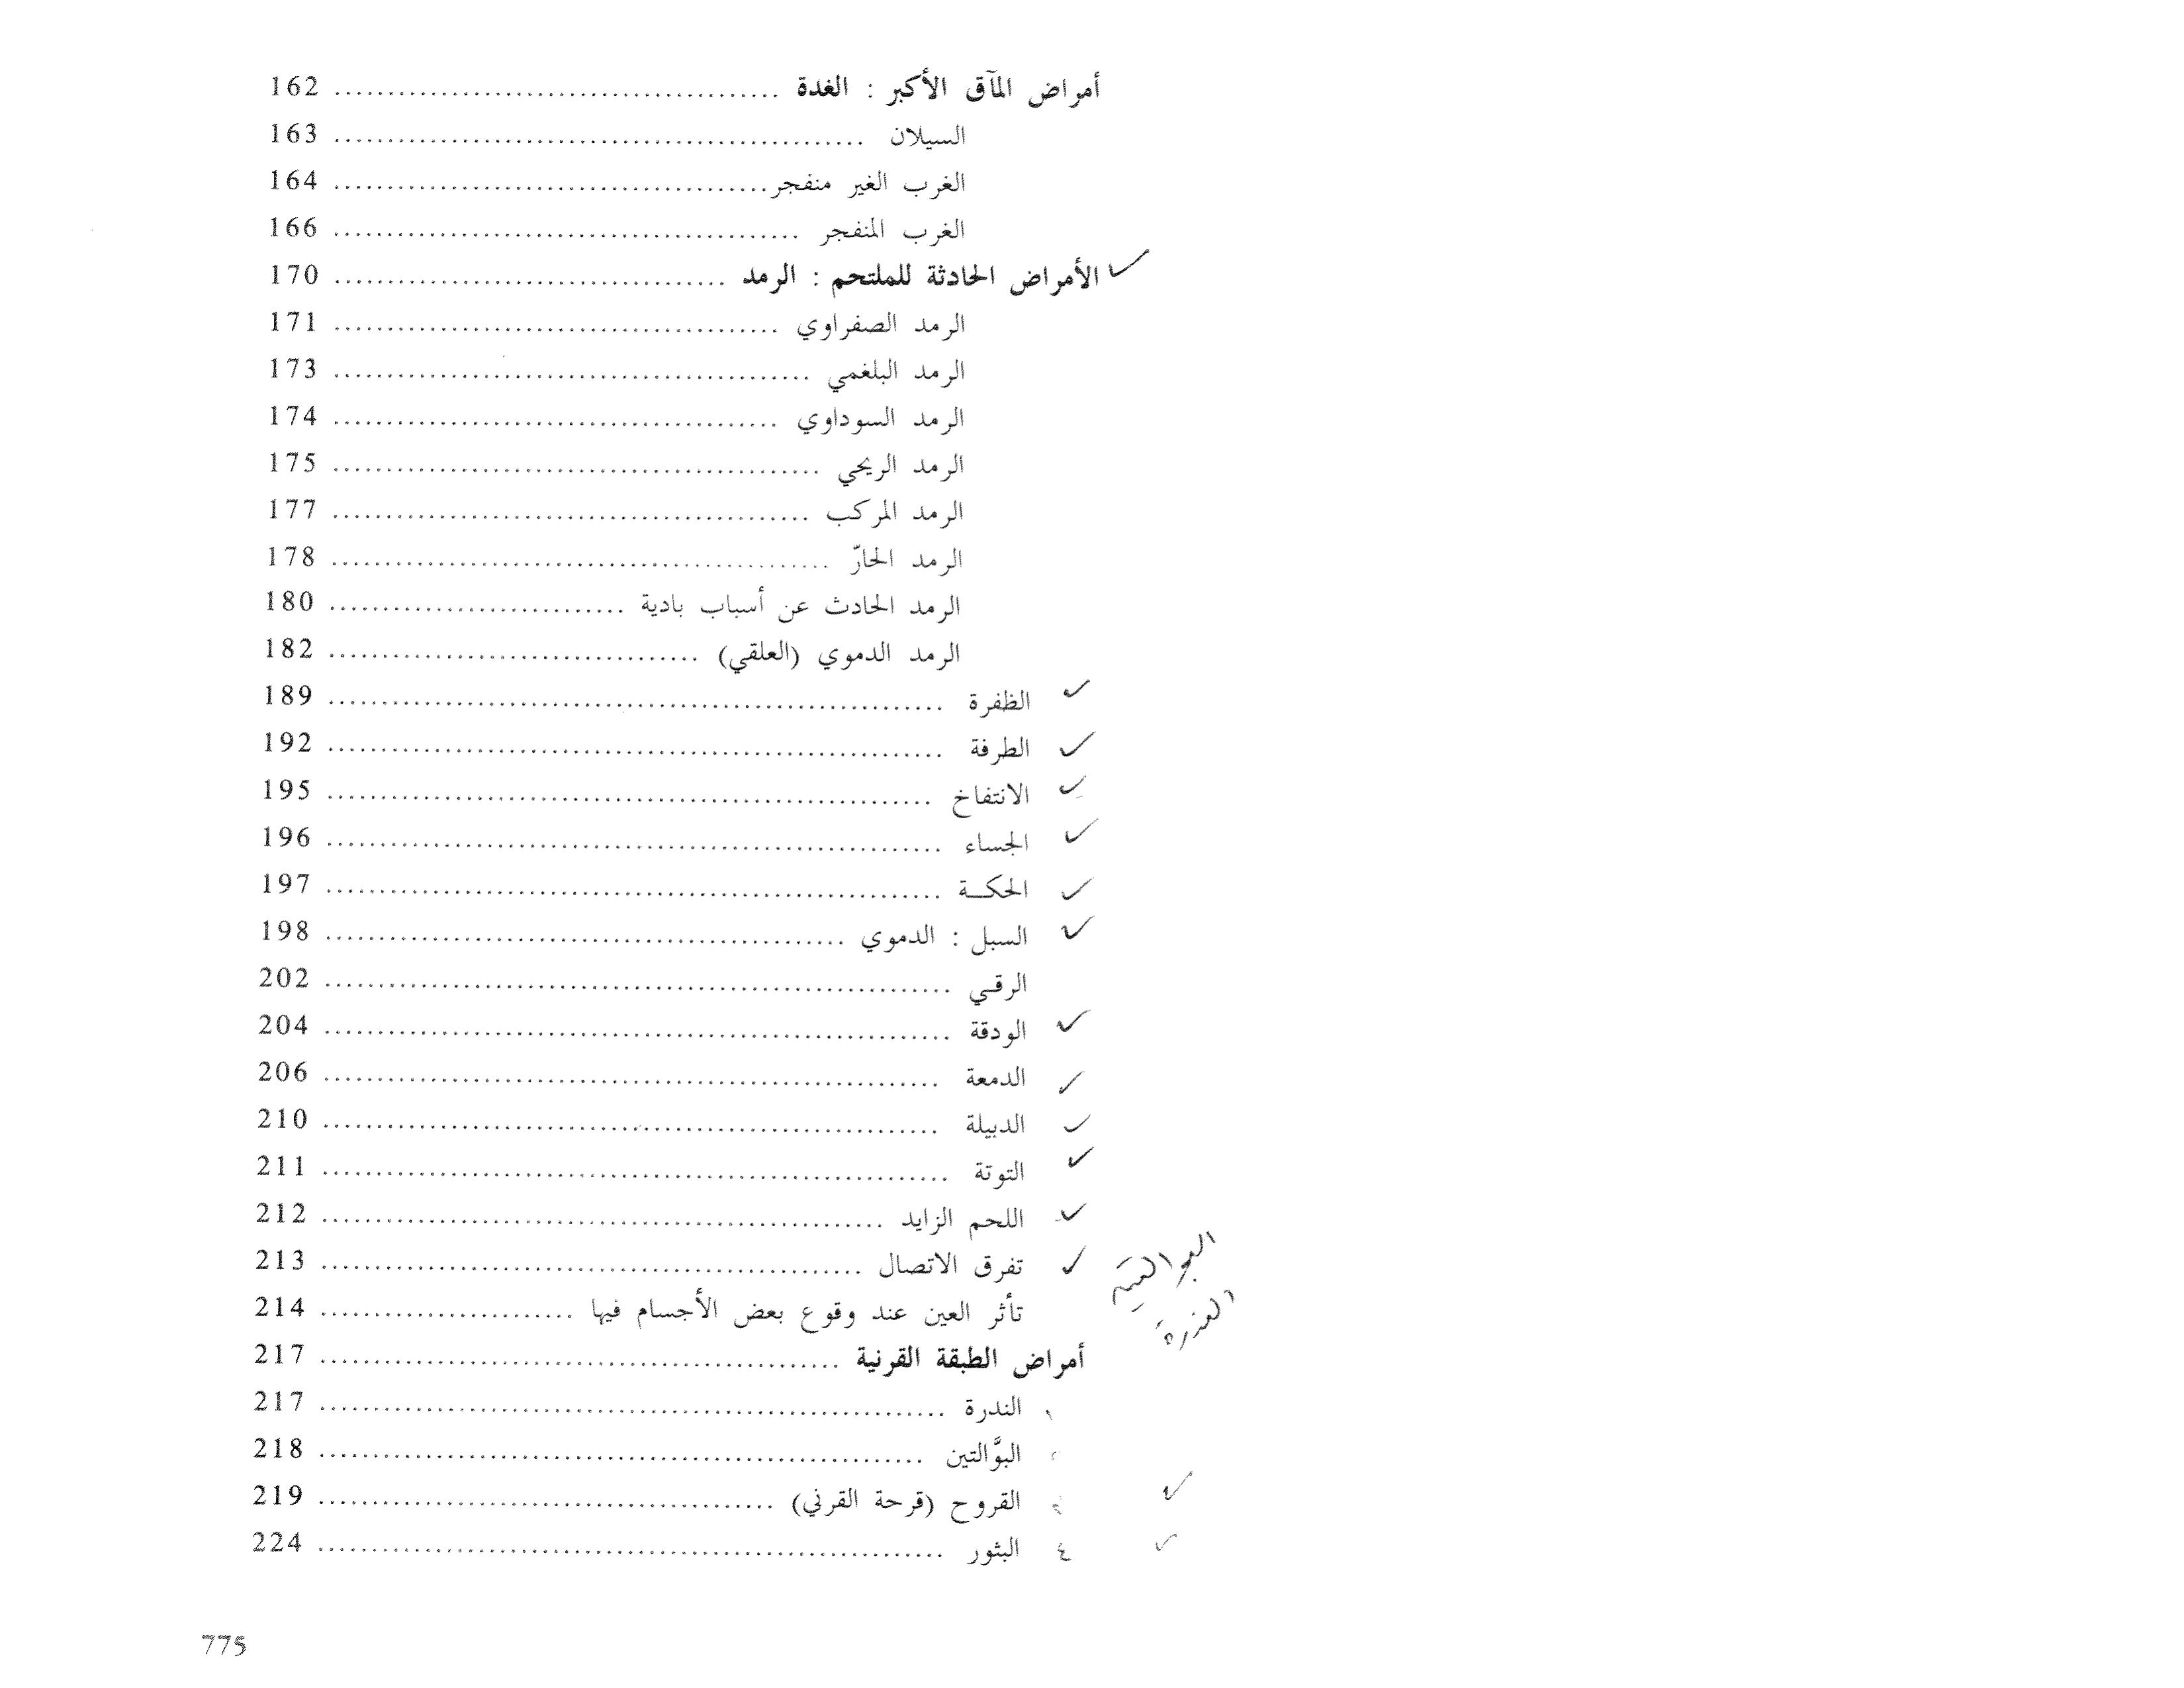 أمراض المآق الأكبر : الغدة ........................................ 162
السيلان ........................................ 163
الغرب الغير منفجر ........................................ 164
الغرب المنفجر ........................................ 166
الأمراض الحادثة للملتحم : الرمد ........................................ 170
الرمد الصفراوي ........................................ 171
الرمد البلغمي ........................................ 173
الرمد السوداوي ........................................ 174
الرمد الريحي ........................................ 175
الرمد المركب ........................................ 177
الرمد الحارّ ........................................ 178
الرمد الحادث عن أسباب بادية ........................................ 180
الرمد الدموي (العلقي) ........................................ 182
الظفرة ........................................ 189
الطرفة ........................................ 192
الانتفاخ ........................................ 195
الجساء ........................................ 196
الحكـة ........................................ 197
السبل : الدموي ........................................ 198
الرقي ........................................ 202
الودقة ........................................ 204
الدمعة ........................................ 206
الدبيلة ........................................ 210
التوتة ........................................ 211
اللحم الزايد ........................................ 212
تفرق الاتصال ........................................ 213
تأثر العين عند وقوع بعض الأجسام فيها ........................................ 214
أمراض الطبقة القرنية ........................................ 217
الندرة ........................................ 217
البوَّالتين ........................................ 218
القروح (قرحة القرني) ........................................ 219
٤ البثور ........................................ 224
775